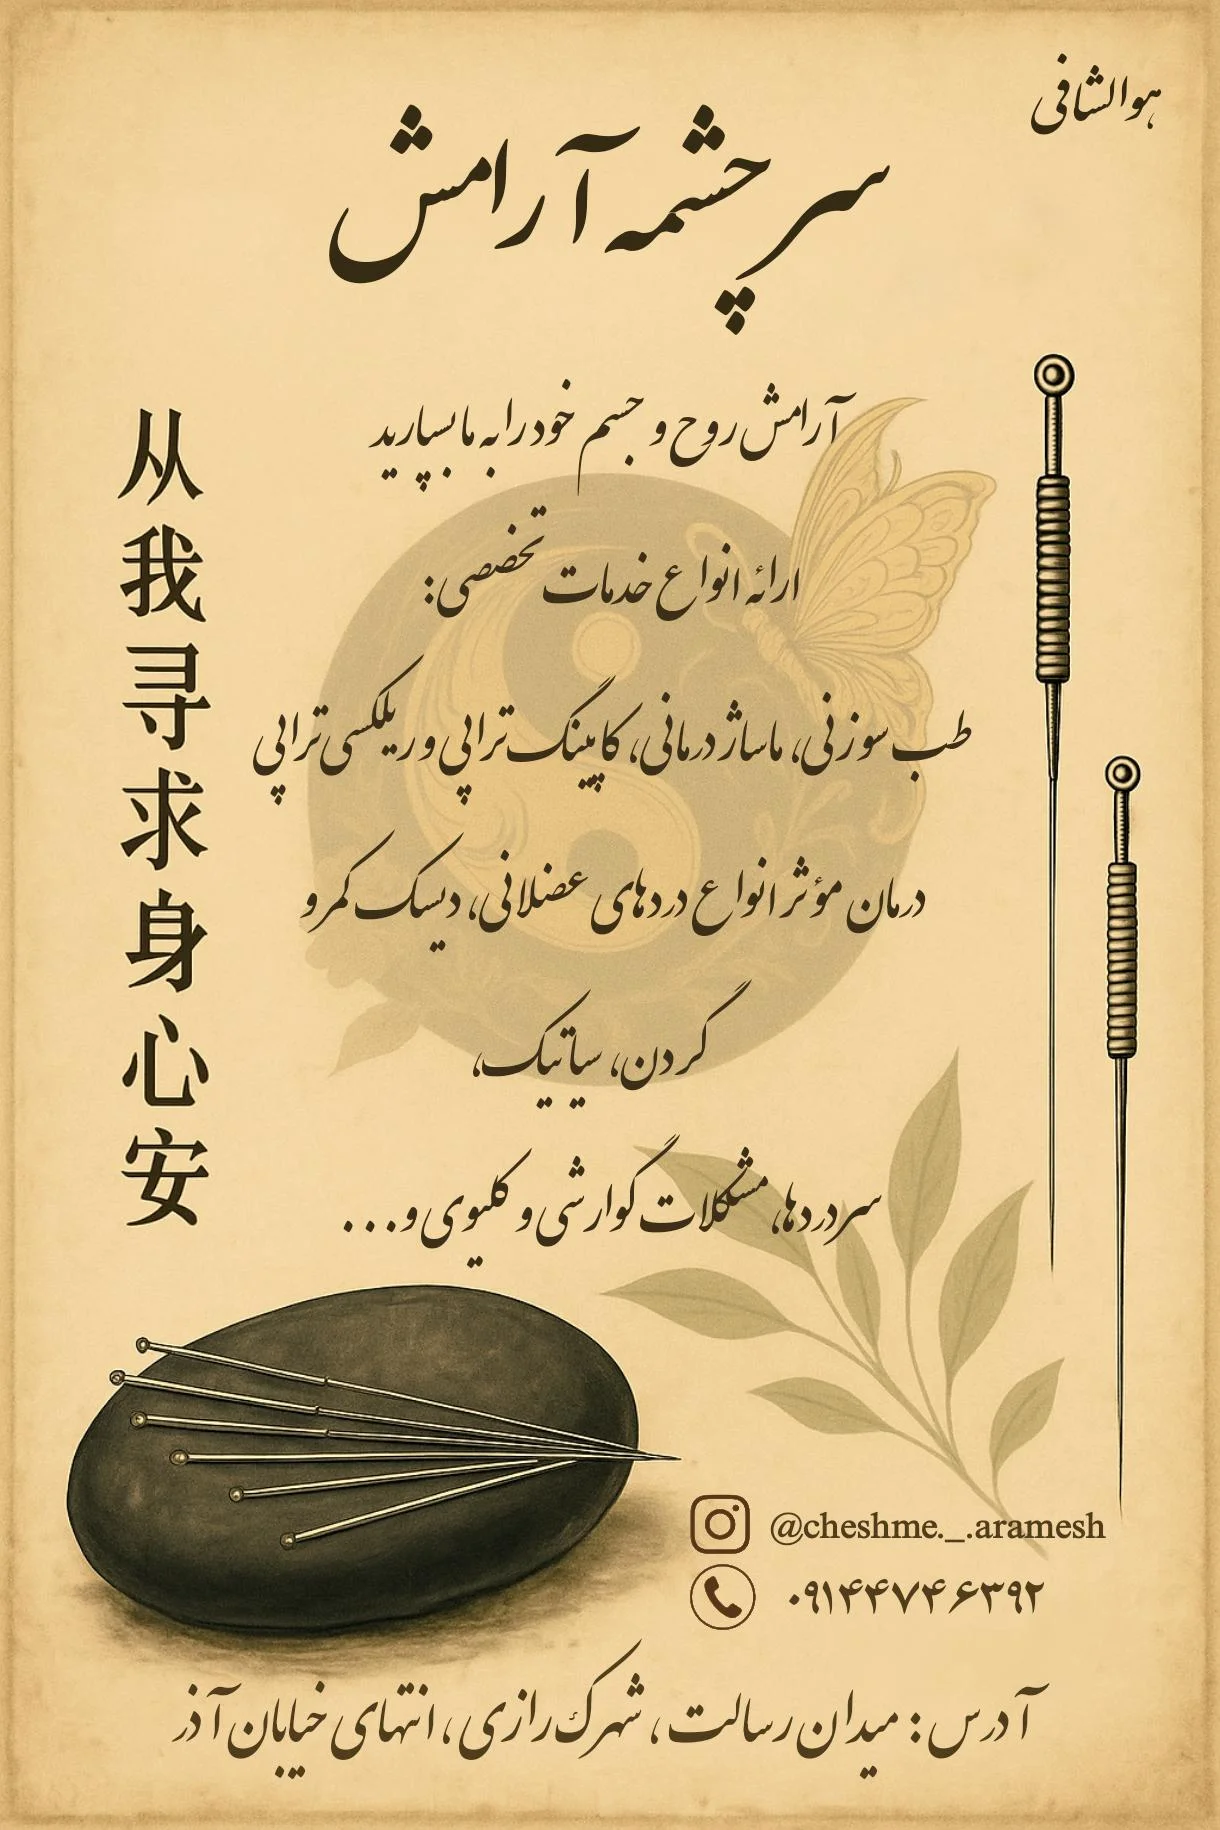 هوالشافی
سرچشمه آرامش
آرامش روح و جسم خود را به ما بسپارید
ارائه انواع خدمات تخصصی:
طب سوزنی، ماساژ درمانی، کاپینگ تراپی و ریلکسی تراپی
درمان مؤثر انواع دردهای عضلانی، دیسک کمر و
گردن، سیاتیک،
سردردها، مشکلات گوارشی و کلیوی و...
从我寻求身心安
@cheshme._.aramesh
۰۹۱۴۴۷۴۶۳۹۲
آدرس: میدان رسالت، شهرک رازی، انتهای خیابان آذر